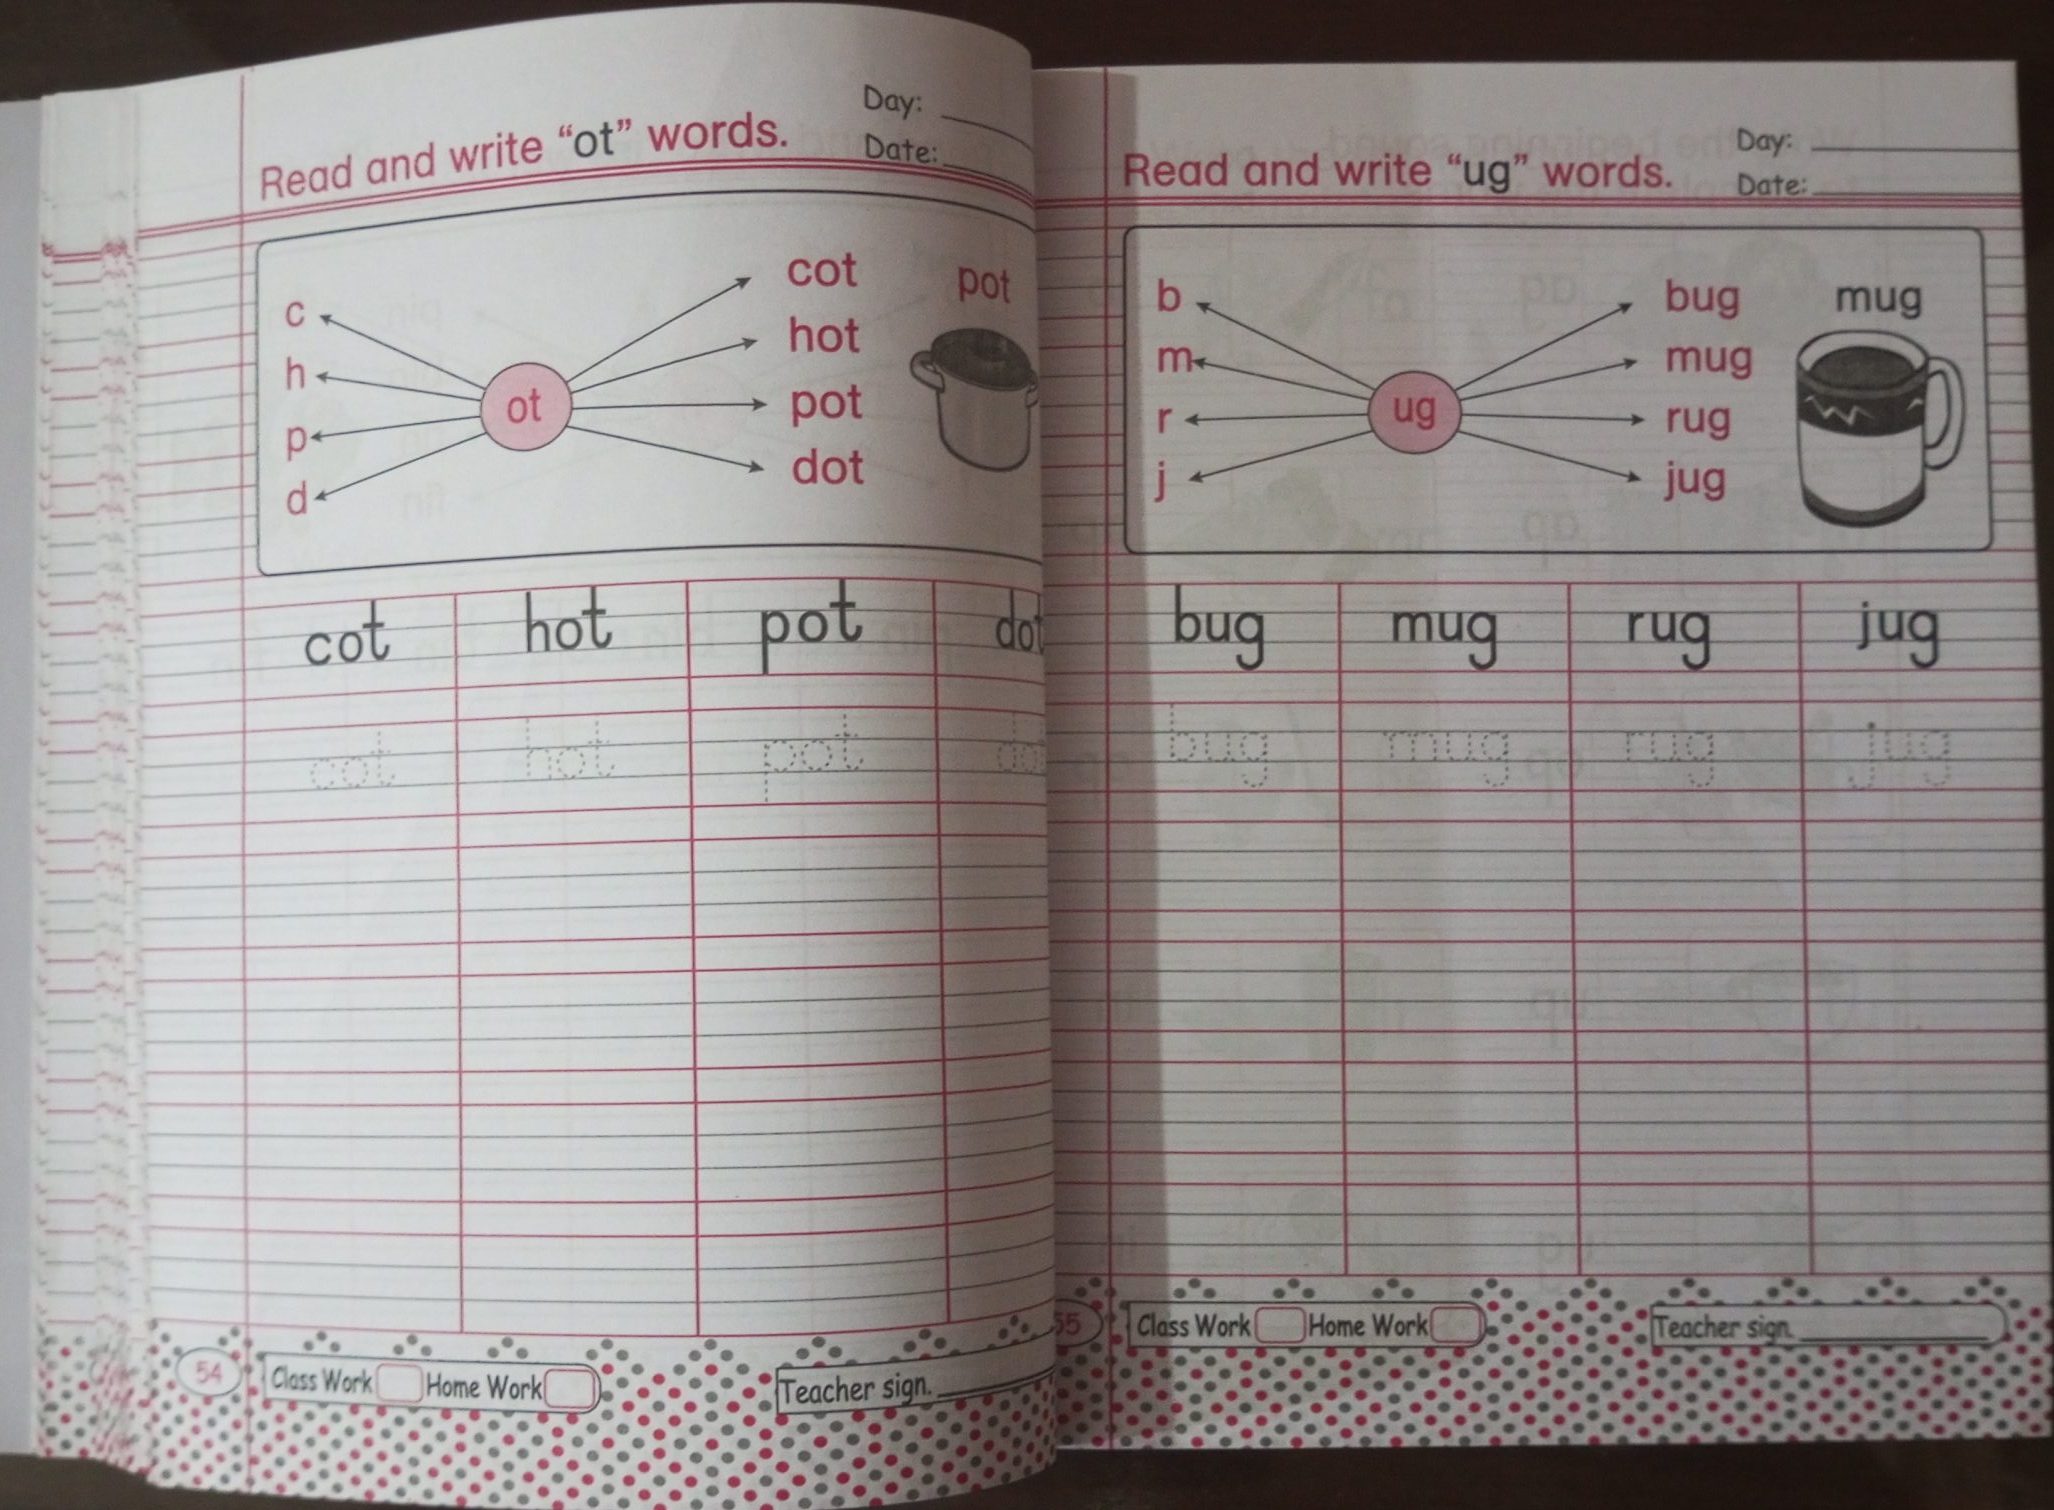 Day:
Read and write “ot” words.
Date:
c
h
p
d
ot
cot
hot
pot
dot
pot
cot hot pot dot
cot hot pot do
54
Class Work Home Work
Teacher sign.
Day:
Read and write “ug” words.
Date:
b
m
r
j
ug
bug
mug
rug
jug
mug
bug mug rug jug
bug mug rug jug
55
Class Work Home Work
Teacher sign.